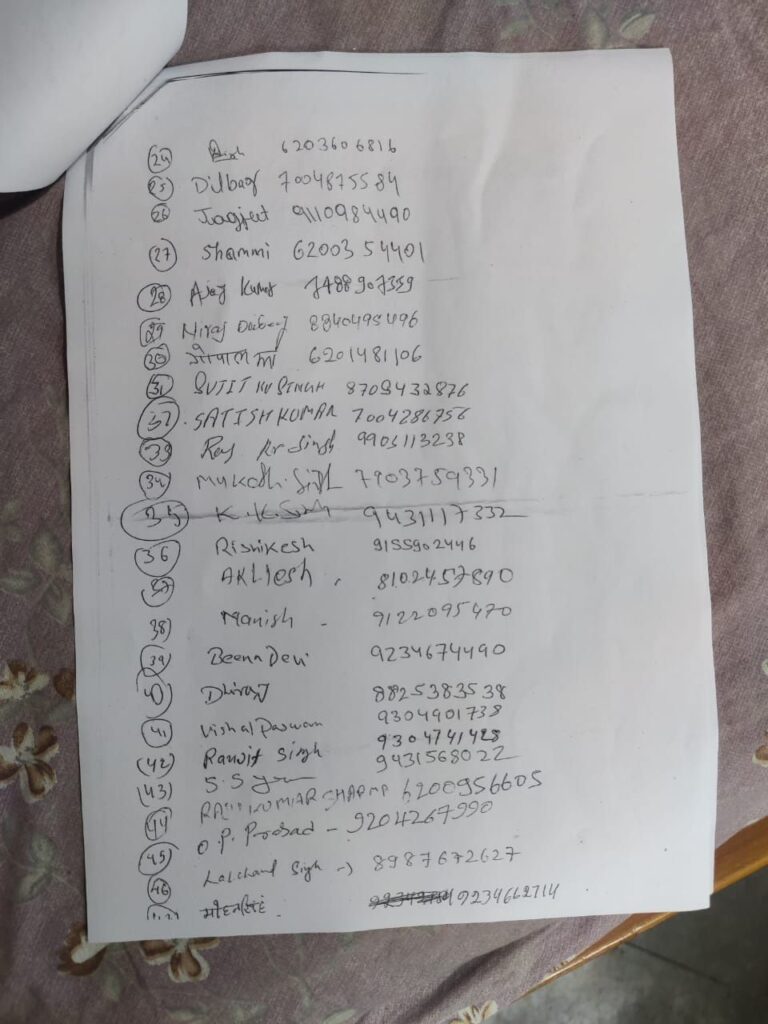 24 6203606816
25 Dilbag 7004875584
26 Jagjeet 9110984490
27 Shammi 6200354401
28 Ajay Kumar 7488907359
29 Niraj 8840495496
30 गोपाल 6201481106
31 SUJIT KU SINGH 8709432876
32. SATISH KUMAR 7004286756
33 Raj Kr Singh 9905113238
34 Mukesh. Singh 7903759331
35 K. K. Singh 9431117332
36 Rishikesh 9155902446
37 AKHlesh . 8102457890
38 Manish - 9122095470
39 Beena Devi 9234674490
Dhiraj 8825383538
41 Vishal Paswan 9304901738
42 Ranjit Singh 9304741428
43 S. S 9431568022
44 KUMAR SHARMA 6200956605
45 O. P. Prosad - 9204267990
46 Lalchand Singh -> 8987672627
9234662714